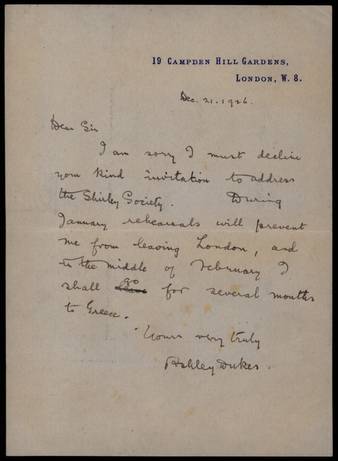 19 Campden Hill Gardens,
London, W. 8.
Dec. 21. 1926.
Dear Sir
I am sorry I must decline
your kind invitation to address
the Shirley Society. During
January rehearsals will prevent
me from leaving London, and
in the middle of February I
shall go for several months
to Greece.
Yours very truly
Ashley Dukes.